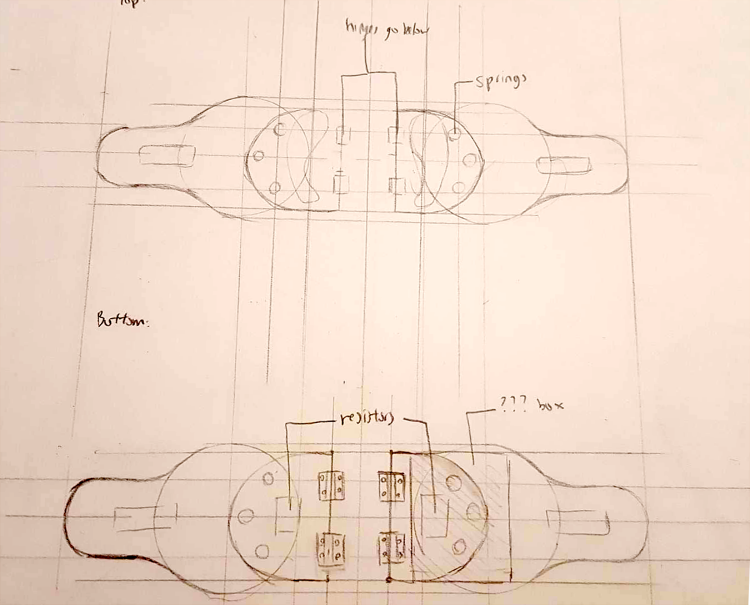 Top:
hinges go below
springs
Bottom:
resistors
??? box